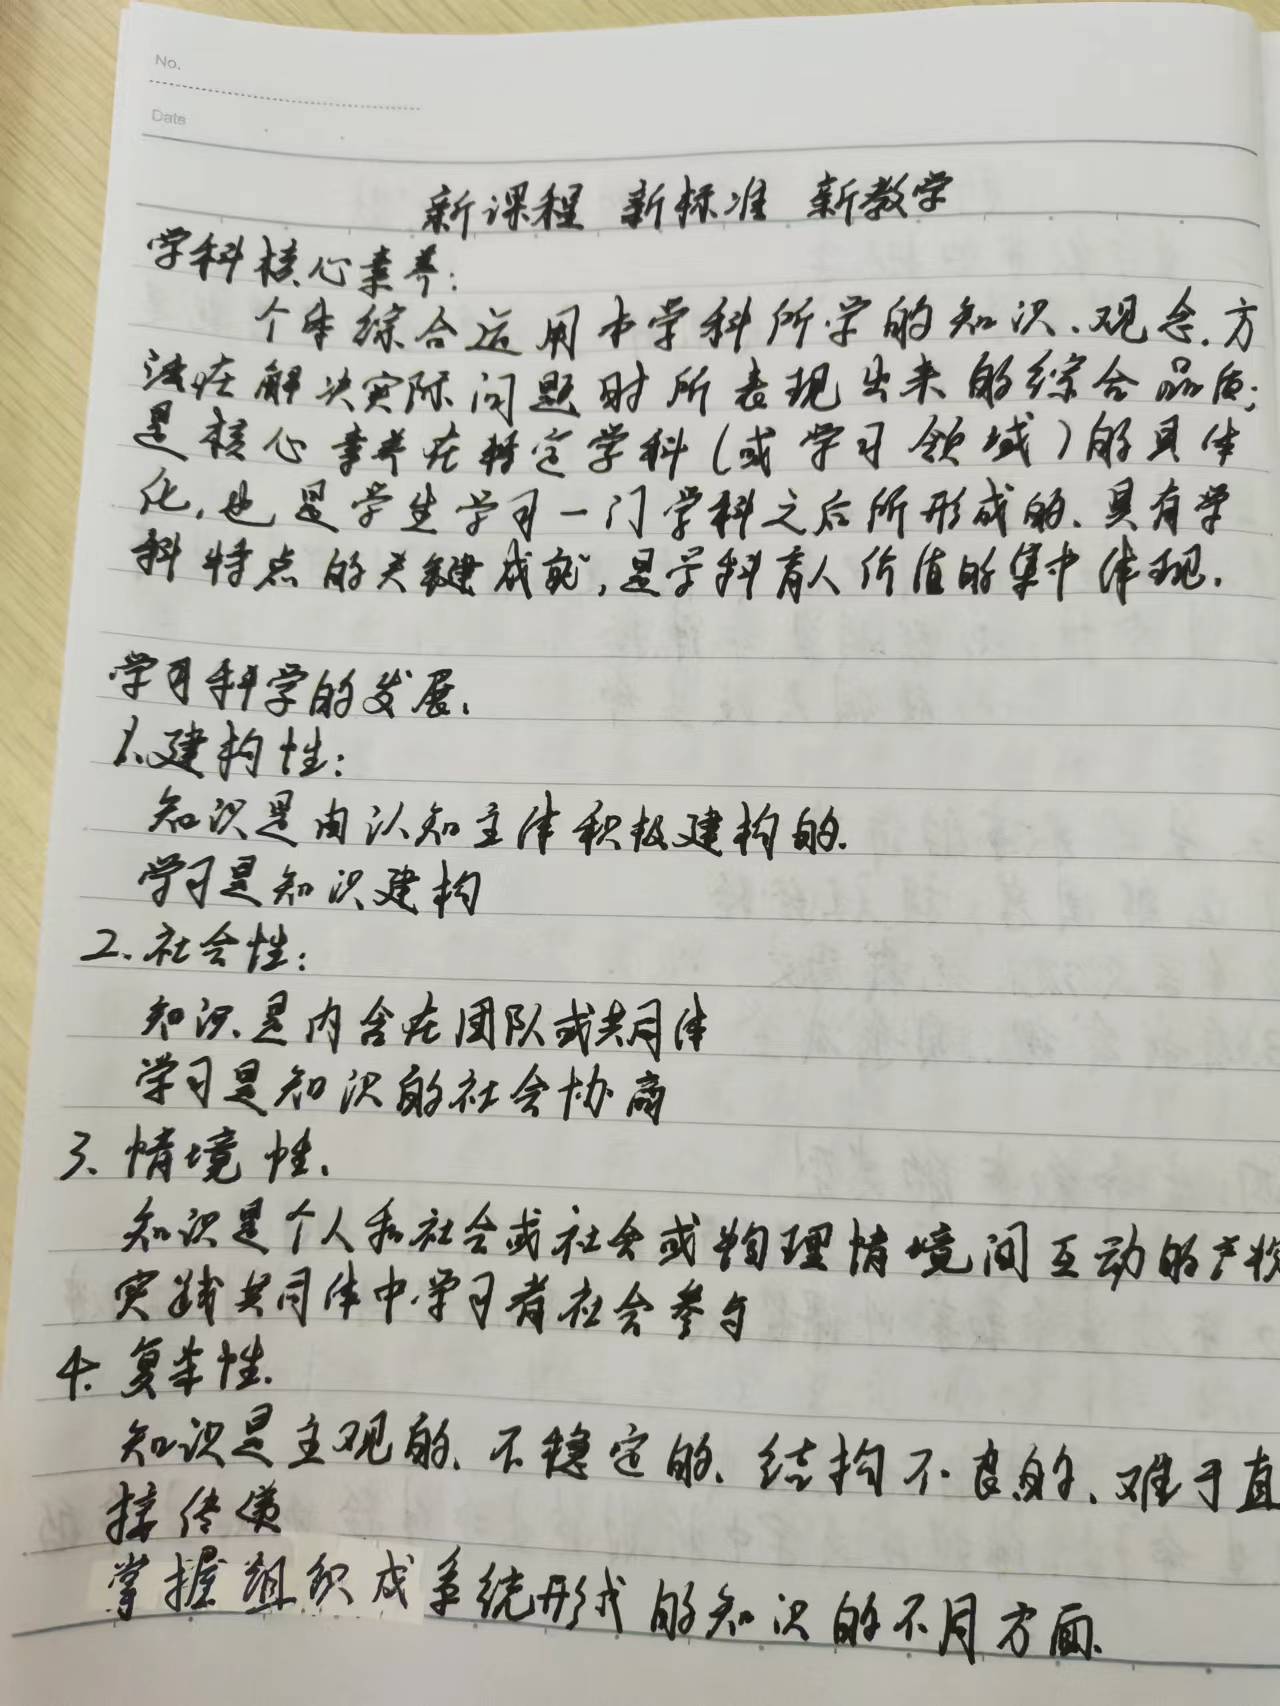 No.
Date
新课程 新标准 新教学
学科核心素养:
个体综合运用本学科所学的知识、观念、方
法在解决实际问题时所表现出来的综合品质;
是核心素养在特定学科(或学习领域)的具体
化,也是学生学习一门学科之后所形成的、具有学
科特点的关键成就,是学科育人价值的集中体现.
学习科学的发展.
1.建构性:
知识是由认知主体积极建构的.
学习是知识建构
2.社会性:
知识是内含在团队或共同体
学习是知识的社会协商
3.情境性.
知识是个人和社会或社会或物理情境间互动的产物
实践共同体中学习者社会参与
4.复杂性.
知识是主观的、不稳定的、结构不良的、难于直
接传递
掌握组织成系统形式的知识的不同方面.